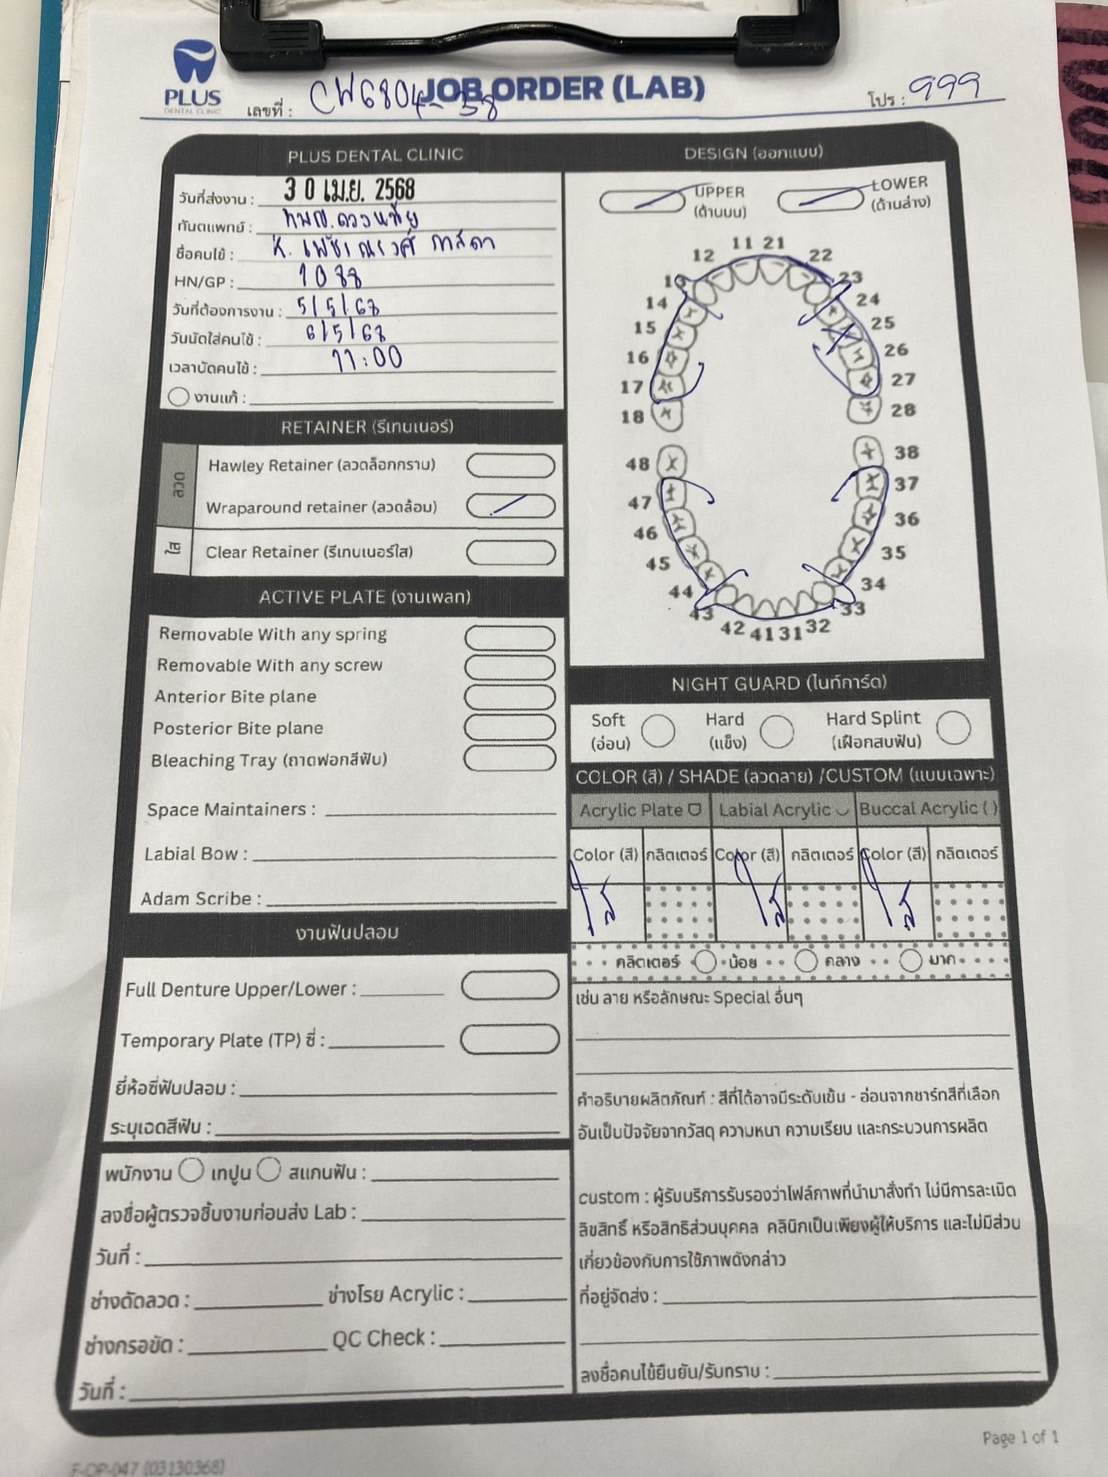 PLUS
DENTAL CLINIC
JOB ORDER (LAB)
เลขที่ : CW6804-38
โปร : 999
PLUS DENTAL CLINIC
วันที่ส่งงาน : 30 เม.ย. 2568
ทันตแพทย์ :
ชื่อคนไข้ :
HN/GP : 1088
วันที่ต้องการงาน : 5/5/68
วันนัดใส่คนไข้ : 6/5/68
เวลานัดคนไข้ : 11:00
งานแก้ :
RETAINER (รีเทนเนอร์)
ลวด
Hawley Retainer (ลวดล็อกกราม)
Wraparound retainer (ลวดล้อม)
ใส
Clear Retainer (รีเทนเนอร์ใส)
ACTIVE PLATE (งานเพลท)
Removable With any spring
Removable With any screw
Anterior Bite plane
Posterior Bite plane
Bleaching Tray (ถาดฟอกสีฟัน)
Space Maintainers :
Labial Bow :
Adam Scribe :
งานฟันปลอม
Full Denture Upper/Lower :
Temporary Plate (TP) ซี่ :
ยี่ห้อซี่ฟันปลอม :
ระบุเฉดสีฟัน :
พนักงาน เทปูน สแกนฟัน :
ลงชื่อผู้ตรวจชิ้นงานก่อนส่ง Lab :
วันที่ :
ช่างดัดลวด : ช่างโรย Acrylic :
ช่างกรอขัด : QC Check :
วันที่ :
DESIGN (ออกแบบ)
UPPER (ด้านบน)
LOWER (ด้านล่าง)
11 21
12 22
13 23
14 24
15 25
16 26
17 27
18 28
48 38
47 37
46 36
45 35
44 34
43 33
42 41 31 32
NIGHT GUARD (ไนท์การ์ด)
Soft (อ่อน)
Hard (แข็ง)
Hard Splint (เฝือกสบฟัน)
COLOR (สี) / SHADE (ลวดลาย) /CUSTOM (แบบเฉพาะ)
Acrylic Plate Labial Acrylic Buccal Acrylic ( )
Color (สี) กลิตเตอร์ Color (สี) กลิตเตอร์ Color (สี) กลิตเตอร์
ใส ใส ใส
กลิตเตอร์ น้อย กลาง มาก
เช่น ลาย หรือลักษณะ Special อื่นๆ
คำอธิบายผลิตภัณฑ์ : สีที่ได้อาจมีระดับเข้ม - อ่อนจากชาร์ทสีที่เลือก
อันเป็นปัจจัยจากวัสดุ ความหนา ความเรียบ และกระบวนการผลิต
custom : ผู้รับบริการรับรองว่าไฟล์ภาพที่นำมาสั่งทำ ไม่มีการละเมิด
ลิขสิทธิ์ หรือสิทธิส่วนบุคคล คลินิกเป็นเพียงผู้ให้บริการ และไม่มีส่วน
เกี่ยวข้องกับการใช้ภาพดังกล่าว
ที่อยู่จัดส่ง :
ลงชื่อคนไข้ยืนยัน/รับทราบ :
Page 1 of 1
F-OP-047 (03130368)